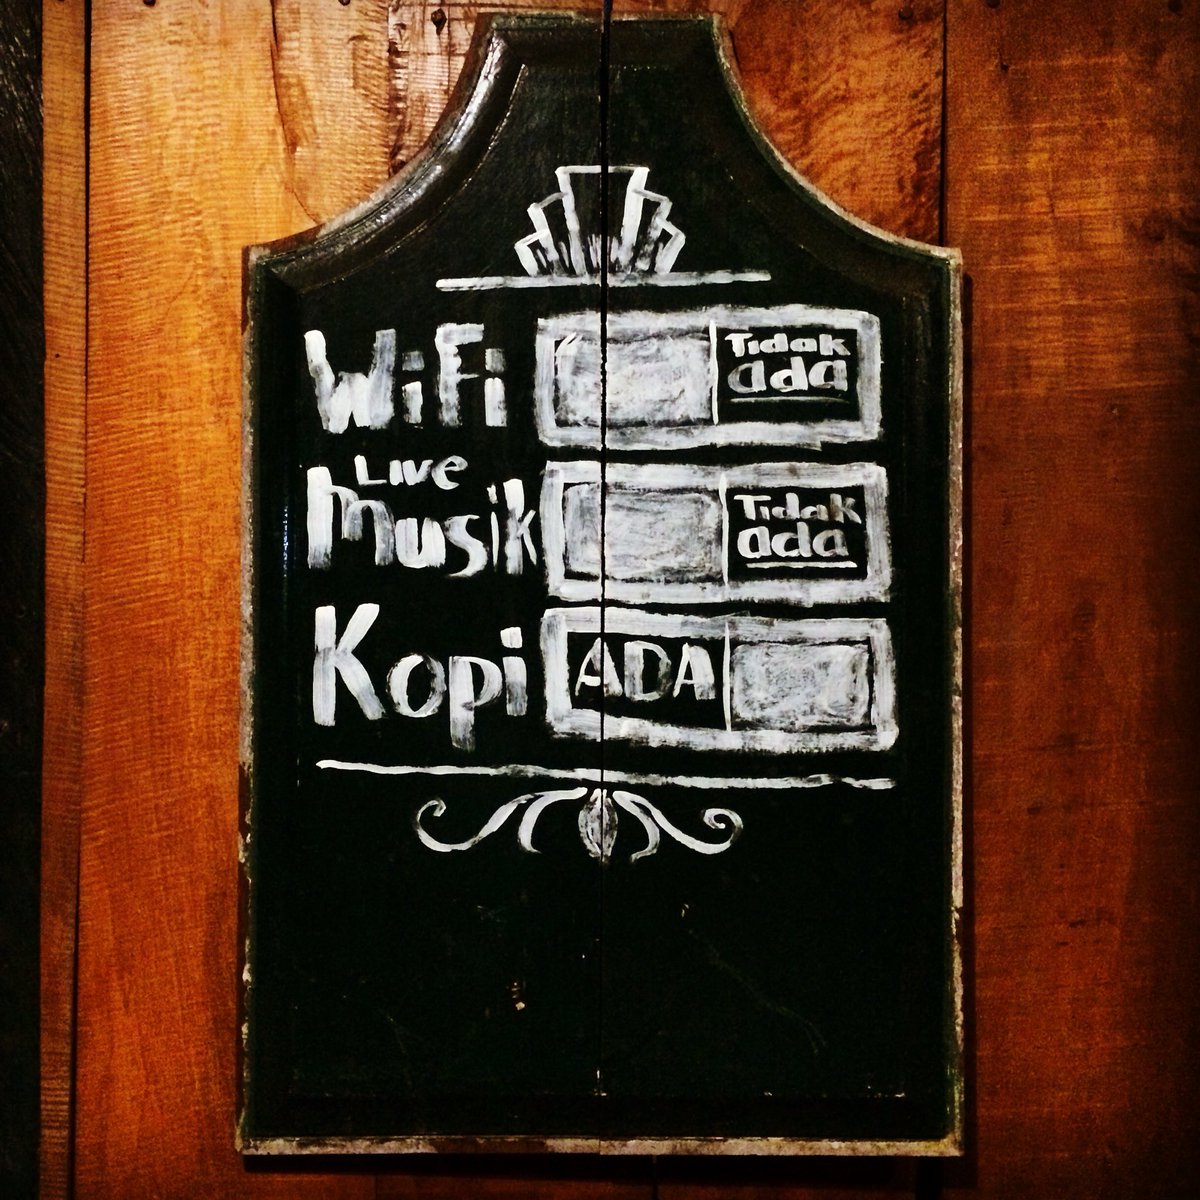 WiFi Tidak
ada
Live
Musik Tidak
ada
Kopi ADA